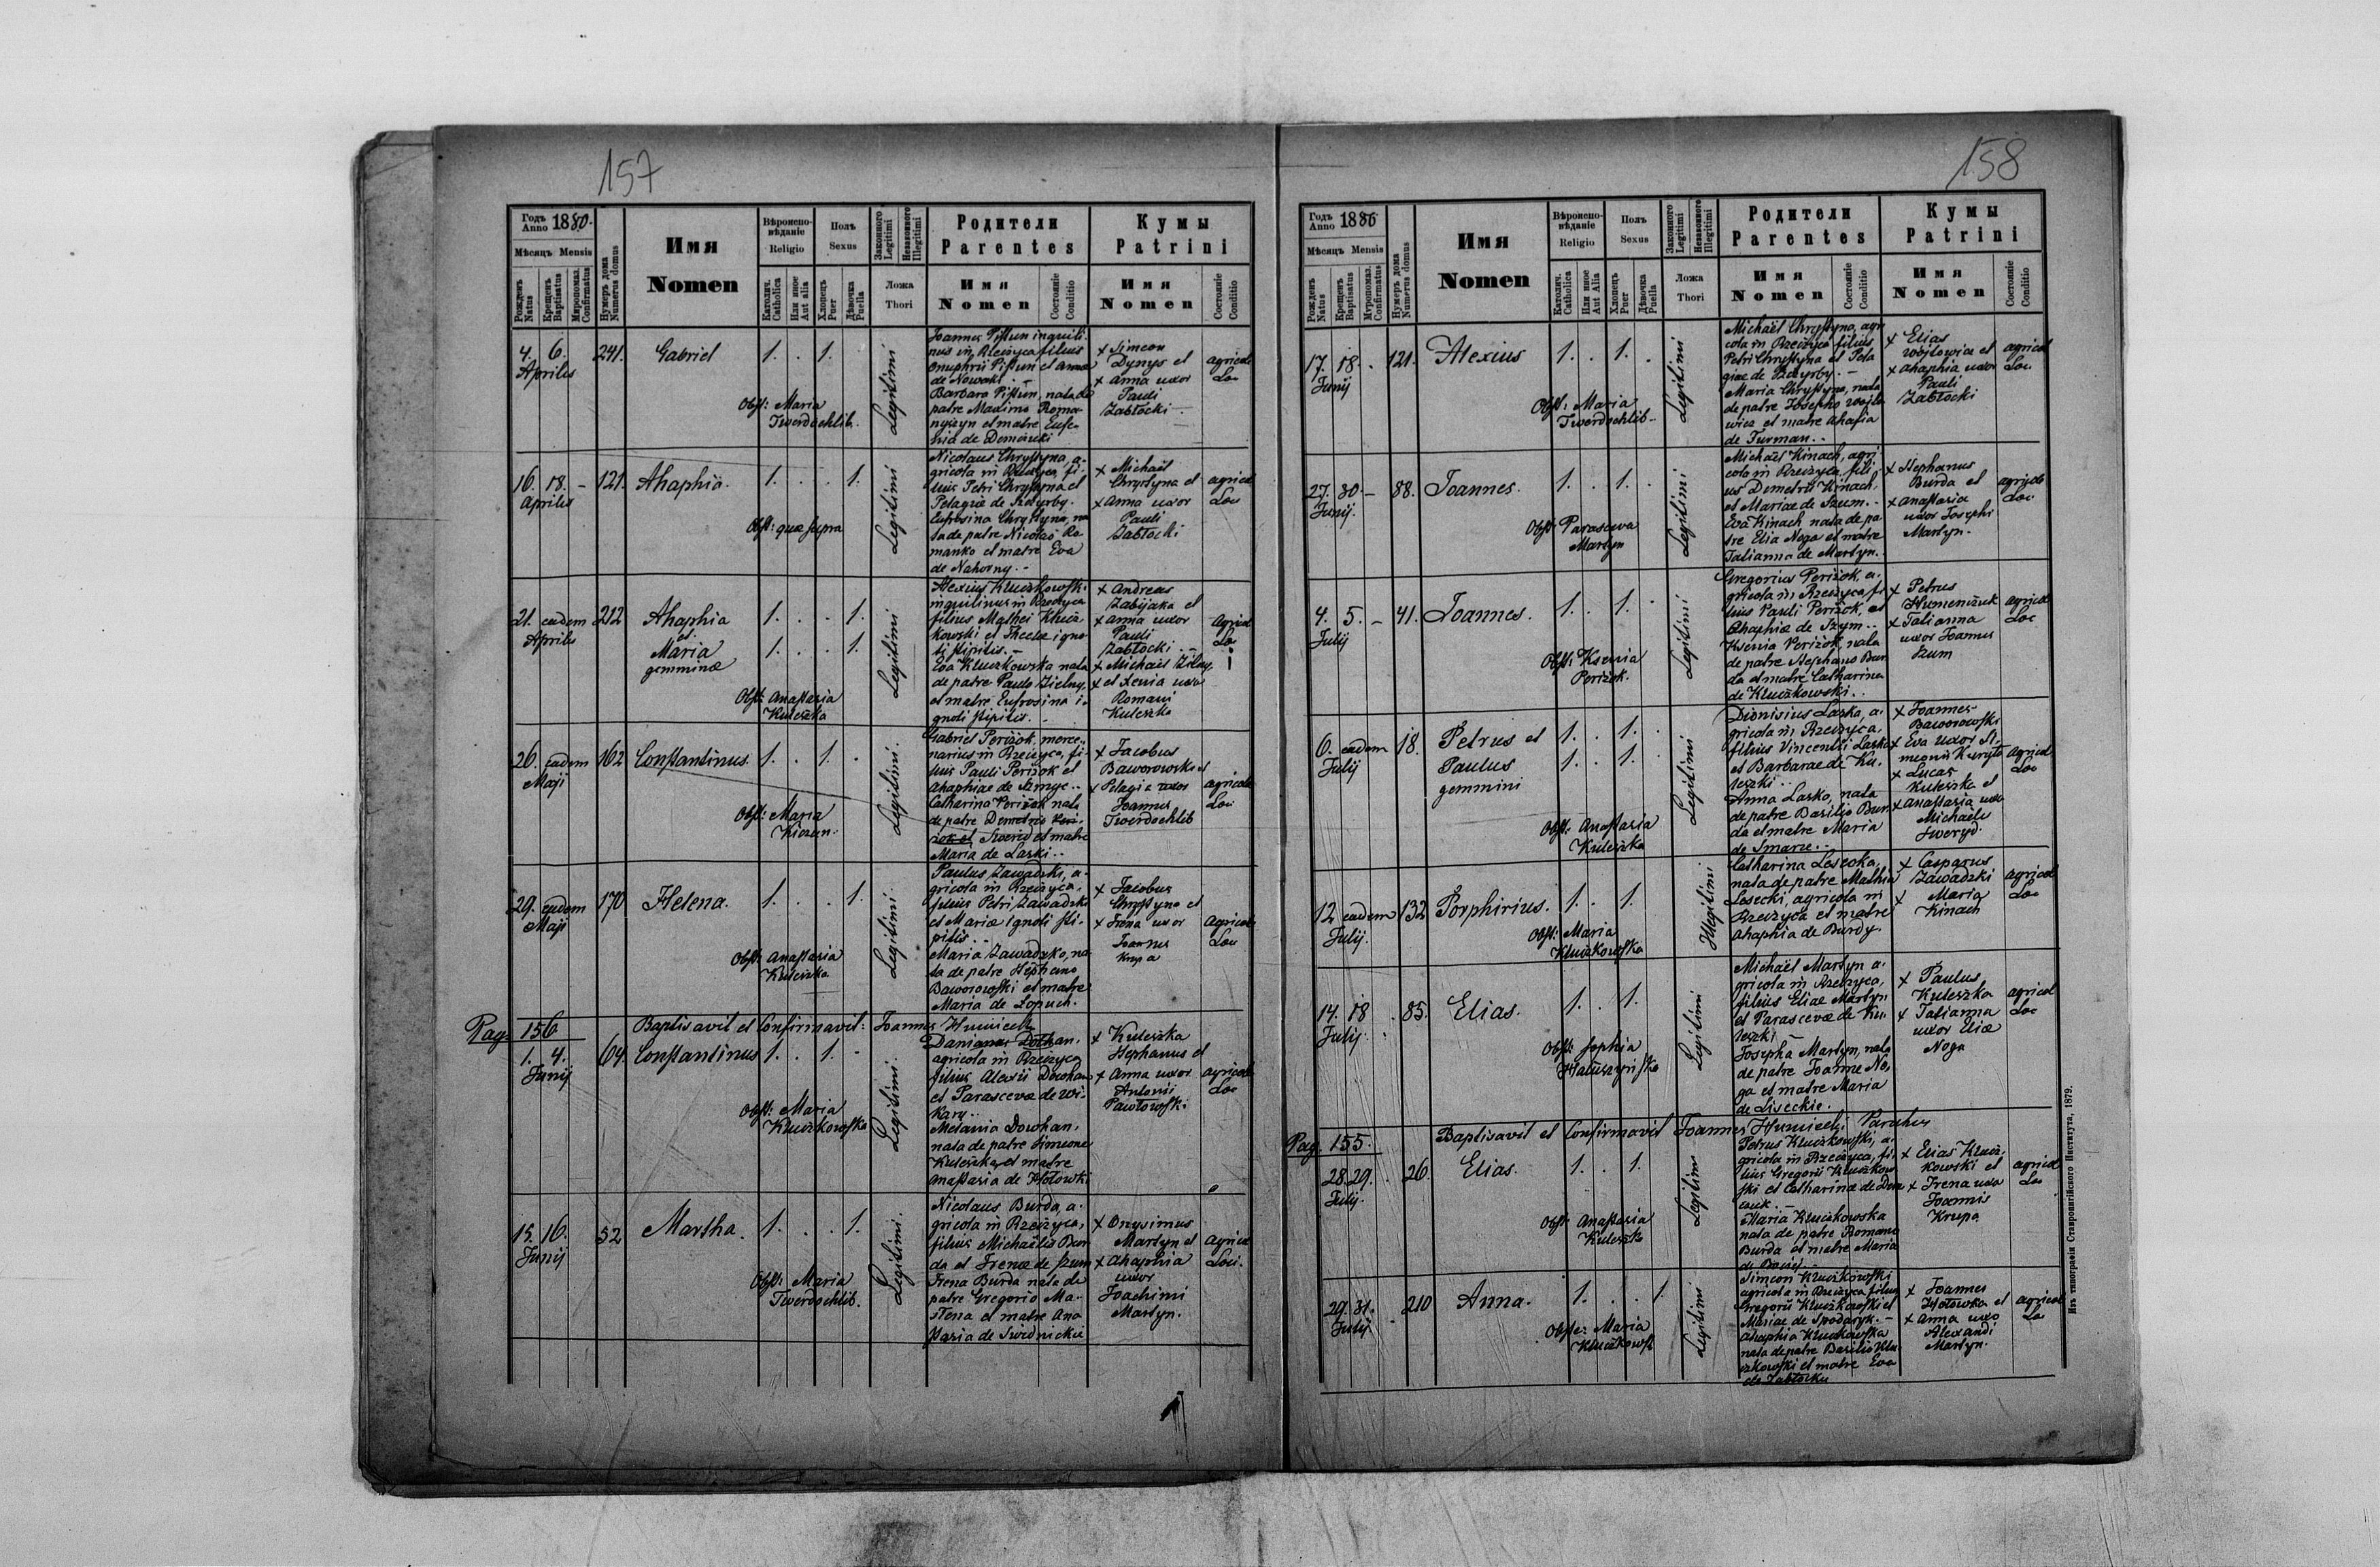 157
Годъ Anno 1880.
Мѣсяцъ Mensis
Рожденъ Natus
Крещенъ Baptisatus
Миропомаз. Confirmatus
Нумеръ дома Numerus domus
Имя Nomen
Вѣроиспо-вѣданіе Religio
Католич. Catholica
Или иное Aut alia
Полъ Sexus
Хлопецъ Puer
Дѣвочка Puella
Законного Legitimi
Незаконного Illegitimi
Ложа Thori
Родители Parentes
Имя Nomen
Состояніе Conditio
Кумы Patrini
Имя Nomen
Состояніе Conditio
4. 6. Aprilis 241. Gabriel 1. . 1. Legitimi
Obst: Maria Twerdochlib.
Joannes Pistun inquili-
nus in Rzeczyca filius
Onuphrii Pistun et Annae
de Nowaki. -
Barbara Pistun, nata de
patre Maximo Roma-
nyszyn et matre Eufe-
mia de
+ Simeon
Dynys et
+ Anna uxor
Pauli
Zabłocki.
agricol
Loc
16. 18. - Aprilis 121. Ahaphia. 1. . . 1. Legitimi
Obst: quae supra
Nicolaus Chrystyna, a-
gricola in Rzeczyca, fi-
lius Petri Chrystyna et
Pelagiae de
Eufrosina Chrystyna, na
ta de patre Nicolao Ro-
manko et matre Eva
de Nahorny. -
+ Michaël
Chrystyna et
+ Anna uxor
Pauli
Zabłocki
agricol
Loci
21. eadem Aprilis 212 Ahaphia et Maria gemminae 1. . . 1. 1. . . 1. Legitimi
Obst: Anastasia Kuleszka
Alexius Kluczkowski
inquilinus in Rzeczyca
filius Mathei Klucz
kowski et Theclae igno
ti stipitis. -
Eva Kluczkowska nata
de patre Paulo Zielny,
et matre Eufrosina i-
gnoti stipitis. -
+ Andreas
Zabijaka et
+ Anna uxor
Pauli
Zabłocki. -
+ Michaël Zilny
+ et Xenia uxor
Romani
Kuleszka
agricol
Loc
26. eadem Maji 162 Constantinus 1. . 1. . Legitimi.
Obst: Maria
Gabriel Perizok, merce-
narius in Rzeczyca, fi-
lius Pauli Perizok et
Ahaphiae de
Catharina Perizok nata
de patre Demetrio
et matre
Maria de Laski. -
+ Jacobus
Baworowski et
+ Pelagia uxor
Joannes
Twerdochlib
agricol
Loci
29. eadem Maji 170 Helena. 1. . . 1. Legitimi.
Obst: Anastasia Kuleszka
Paulus Zawadzki, a-
gricola in Rzeczyca,
filius Petri Zawadzki
et Mariae ignoti sti-
pitis. -
Maria Zawadzka, na-
ta de patre Stephano
Baworowski et matre
Maria de Łopuch.
+ Jacobus
Chrystyna et
+ Irena uxor
Joannes
Krupa
agricol
Loci
Pag. 156 Baptisavit et Confirmavit: Joannes Humiecki
1. 4. Junij 64. Constantinus 1. . 1. . Legitimi.
Obst: Maria Kluczkowska
agricola in Rzeczyca
filius Alexii Dowhan
et Parascevae de Wi-
kary. -
Melania Dowhan,
nata de patre Simeone
Kuleszka et matre
Anastasia de Hołowki
+ Kuleszka
Stephanus et
+ Anna uxor
Antonii
Pawłowski
agricol
Loc
15. 16. Junij 52 Martha. 1. . . 1. Legitimi.
Obst: Maria Twerdochlib.
Nicolaus Burda, a-
gricola in Rzeczyca,
filius Michaëlis Bur
da et Irenae de Szum
Irena Burda nata de
patre Gregorio Ma-
et matre Ana
stasia de Swidnickie
+ Onysimus
Martyn et
+ Ahaphia
uxor
Joachimi
Martyn.
agricol
Loci.
158
Годъ Anno 1880
Мѣсяцъ Mensis
Рожденъ Natus
Крещенъ Baptisatus
Миропомаз. Confirmatus
Нумеръ дома Numerus domus
Имя Nomen
Вѣроиспо-вѣданіе Religio
Католич. Catholica
Или иное Aut alia
Полъ Sexus
Хлопецъ Puer
Дѣвочка Puella
Законного Legitimi
Незаконного Illegitimi
Ложа Thori
Родители Parentes
Имя Nomen
Состояніе Conditio
Кумы Patrini
Имя Nomen
Состояніе Conditio
17. 18. . Junij 121. Alexius 1. . 1. . Legitimi
Obst: Maria Twerdochlib -
Michaël Chrystyna, agri
cola in Rzeczyca filius
Petri Chrystyna et Pela
giae de
Maria Chrystyna, nata
de patre Josepho Wojto
wicz et matre Ahafia
de Furman. -
+ Elias
Wojtowicz et
+ Ahaphia uxor
Pauli
Zabłocki
agricol
Loci
27. 30. - Junij. 88. Joannes. 1. . 1. . Legitimi
Obst: Parasceva Martyn
Michaël Kinach, agri
cola in Rzeczyca, fili
us Demetrii Kinach,
et Mariae de Szum. -
Eva Kinach nata de pa
tre Elia Noga et matre
Tatianna de Martyn.
+ Stephanus
Burda et
+ Anastasia
uxor Josephi
Martyn.
agricol
Loci
4. 5. - Julij 41. Joannes. 1. . 1. . Legitimi
Obst: Ksenia Perizok.
Gregorius Perizok, a-
gricola in Rzeczyca fi
lius Pauli Perizok, et
Ahaphiae de Szym. -
Ksenia Perizok, nata
de patre Stephano Bur
da et matre Catharina
de Kluczkowski. .
+ Petrus
Humeniuk
+ Tatianna
uxor Joannes
Szum
agricol
Loc
6. eadem Julij 18. Petrus et Paulus gemmini 1. . 1. . 1. . 1. . Legitimi
Obst: Anastasia Kuleszka
Dionisius Laska, a-
gricola in Rzeczyca,
filius Vincentii Laska
et Barbarae de Ku-
leszki. .
Anna Laska, nata
de patre Basilio Bur
da et matre Maria
de
+ Joannes
Baworowski
+ Eva uxor Si-
meonis
+ Lucas
Kuleszka et
+ Anastasia uxor
Michaelis
Sweryd.
agricol
Loc
12 eadem Julij. 132 Porphirius. 1. . 1. Illegitimi
Obst: Maria Kluczkowska
Catharina Lesecka,
nata de patre Mathia
Lesecki, agricola in
Rzeczyca et matre
Ahaphia de Burdy.
+ Casparus
Zawadzki
+ Maria
Kinach
agricol
Loc
14. 18 . Julij. 85. Elias. 1. . 1. Legitimi
Obst: Sophia
Michaël Martyn a-
gricola in Rzeczyca,
filius Eliae Martyn
et Parascevae de Ku-
leszki -
Josepha Martyn, nata
de patre Joanne No-
ga et matre Maria
de Liseckie.
+ Paulus
Kuleszka
+ Tatianna
uxor Eliae
Noga
agricol
Loc
Pag. 155. Baptisavit et Confirmavit Joannes Humiecki Parochus
28. 29. . Julij. 26. Elias. 1. . 1. Legitimi
Obst: Anastasia Kuleszka
Petrus Kluczkowski, a-
gricola in Rzeczyca, fi-
lius Gregorii Kluczkow
ski et Catharinae de
Maria Kluczkowska
nata de patre Romano
Burda et matre Maria
+ Elias Klucz
kowski et
+ Irena uxor
Joannis
Krupa
agricol
Loc
29. 31. . Julij. 210 Anna. 1. . . 1. Legitimi
Obste: Maria Kluczkowsk
Simeon Kluczkowski
agricola in Rzeczyca filius
Gregorii Kluczkowski et
Mariae de Spodaryk. -
Ahaphia Kluczkowska
nata de patre Basilio Klu
czkowski et matre Eva
de Zabłocki
+ Joannes
Hołowka et
+ Anna uxo
Alexandi
Martyn.
agricol
Loc
Изъ типографіи Ставропигійского Института, 1879.